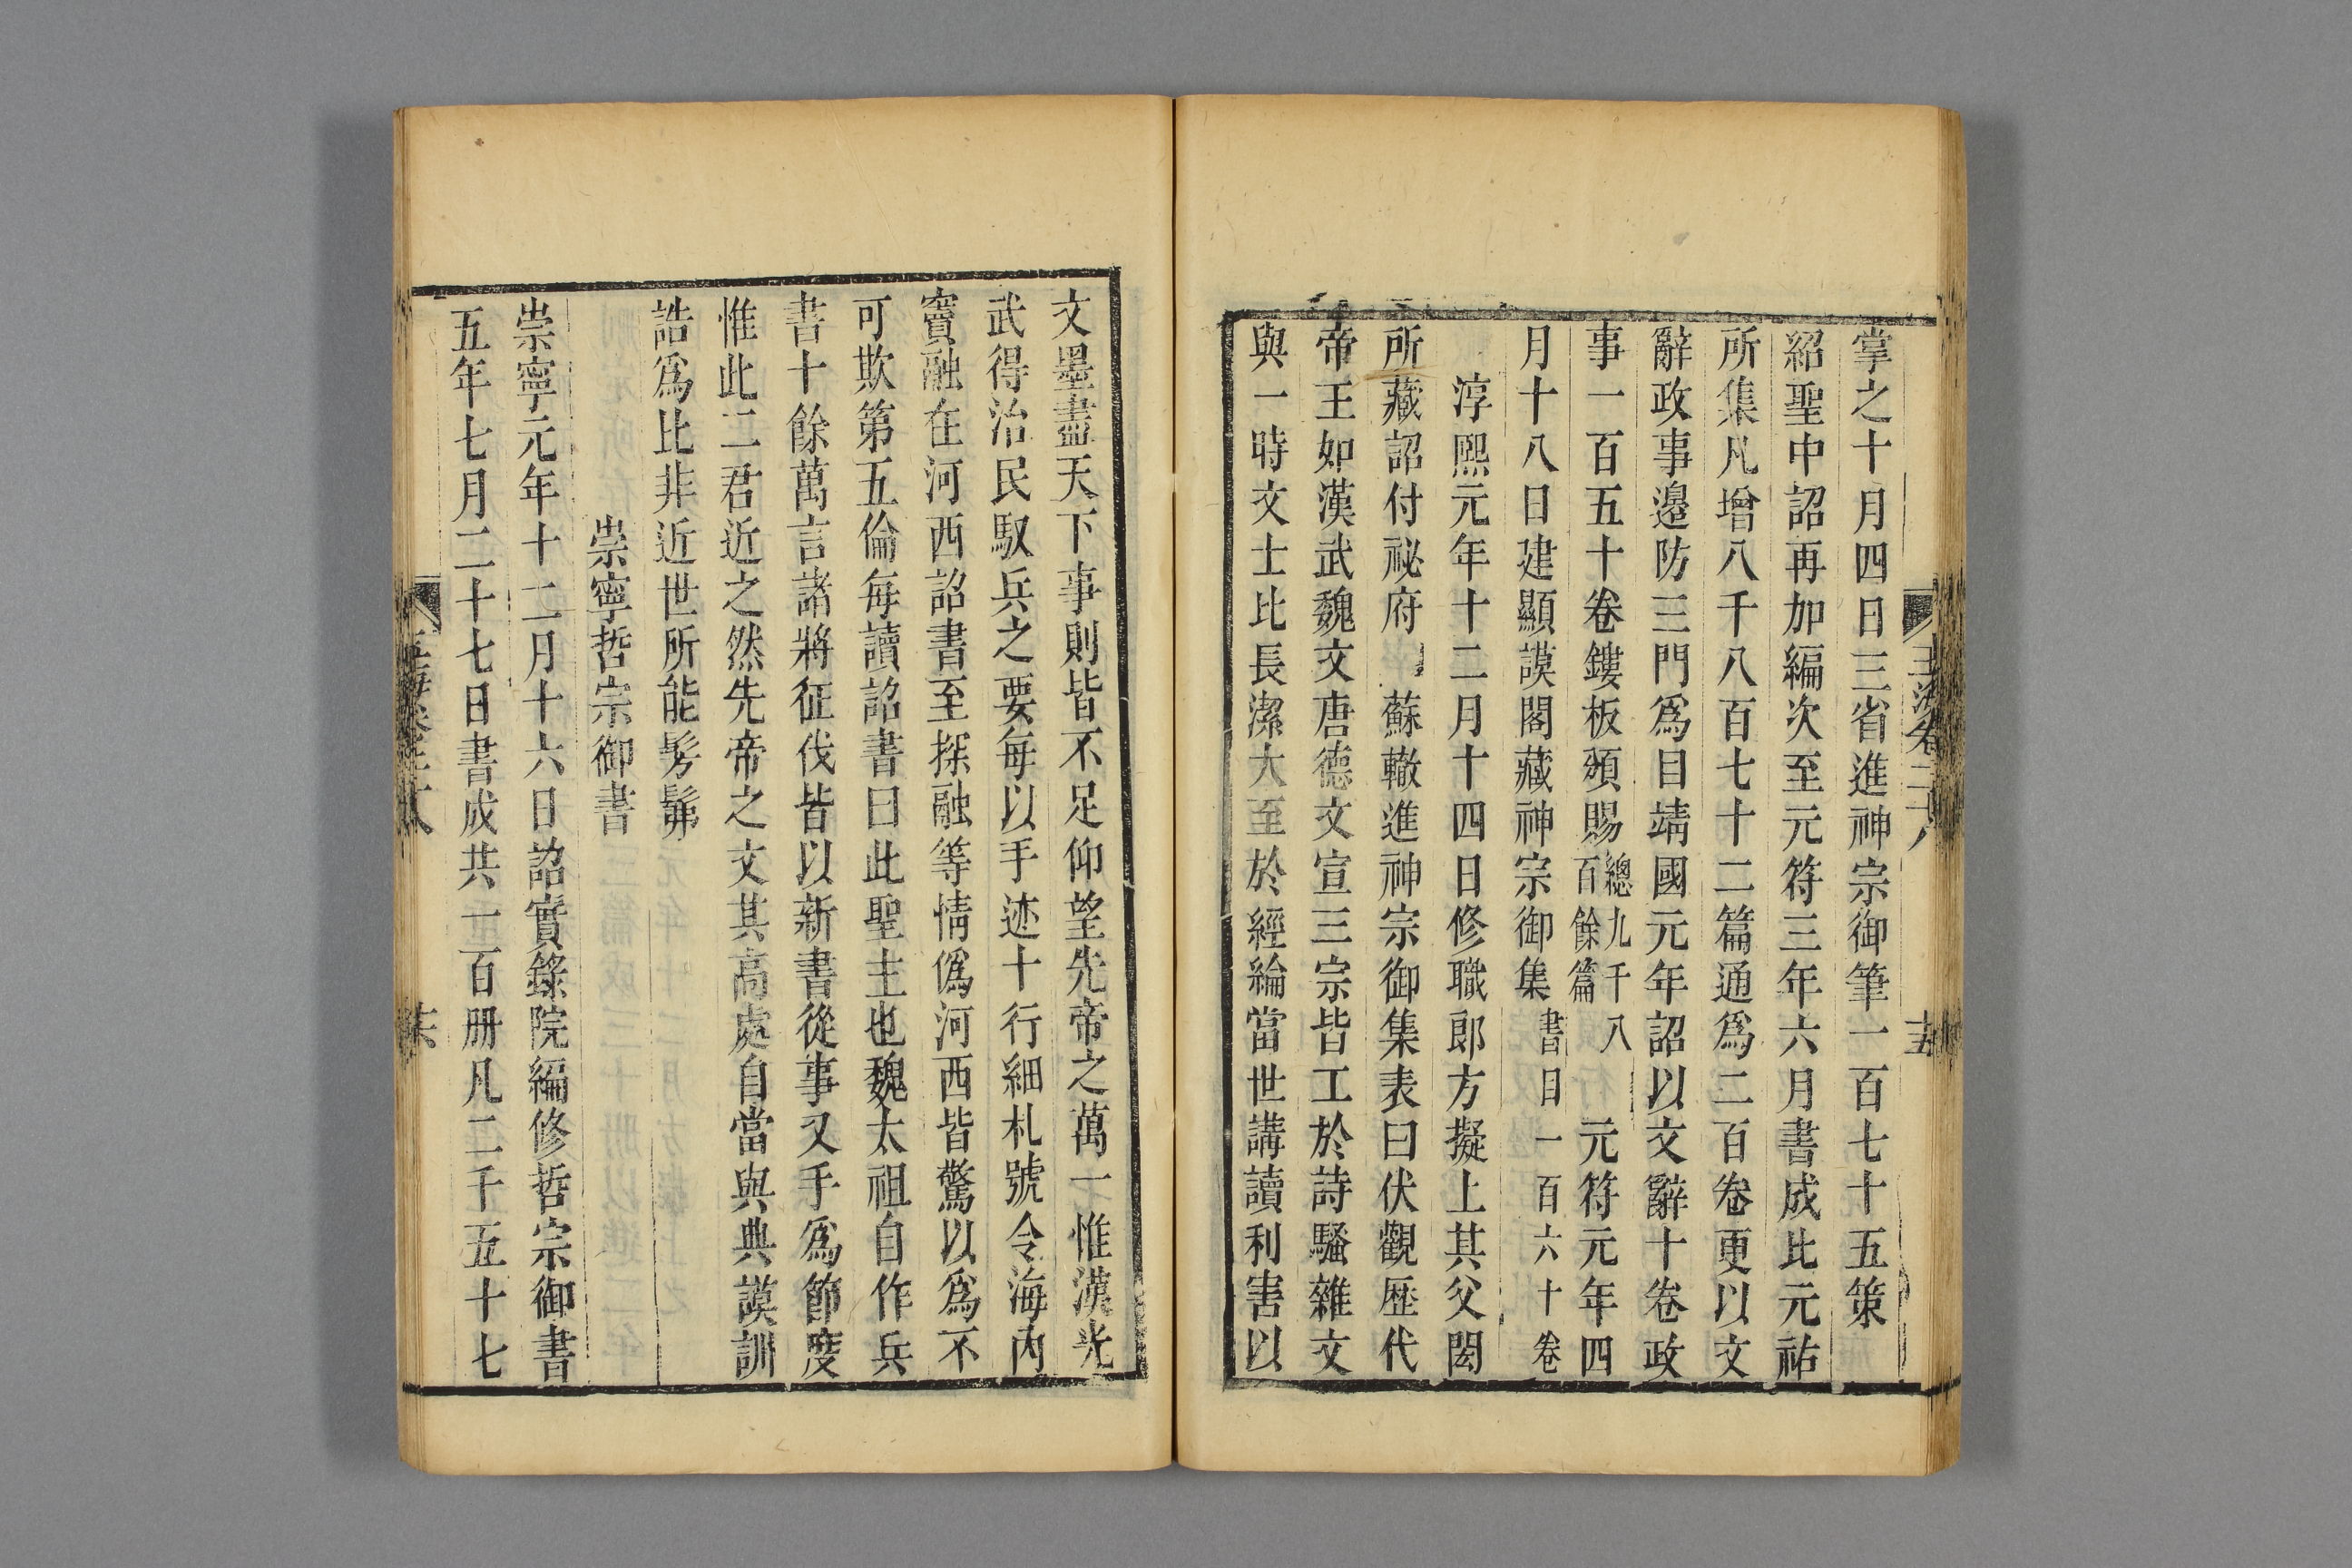 掌之十月四日三省進神宗御筆一百七十五策
紹聖中詔再加編次至元符三年六月書成比元祐
所集凡增八千八百七十二篇通爲二百卷更以文
辭政事邊防三門爲目靖國元年詔以文辭十卷政
事一百五十卷鏤板頒賜總九千八百餘篇 元符元年四
月十八日建顯謨閣藏神宗御集書目一百六十卷
淳熙元年十二月十四日修職郎方擬上其父閎
所藏詔付祕府 蘇轍進神宗御集表曰伏觀歷代
帝王如漢武魏文唐德文宣三宗皆工於詩騷雜文
與一時文士比長潔大至於經綸當世講讀利害以
文墨盡天下事則皆不足仰望先帝之萬一惟漢光
武得治民馭兵之要每以手迹十行細札號令海內
竇融在河西詔書至探融等情僞河西皆驚以爲不
可欺第五倫每讀詔書曰此聖主也魏太祖自作兵
書十餘萬言諸將征伐皆以新書從事又手爲節度
惟此二君近之然先帝之文其高處自當與典謨訓
誥爲比非近世所能髣髴
崇寧哲宗御書
崇寧元年十二月十六日詔實錄院編修哲宗御書
五年七月二十七日書成共一百册凡二千五十七